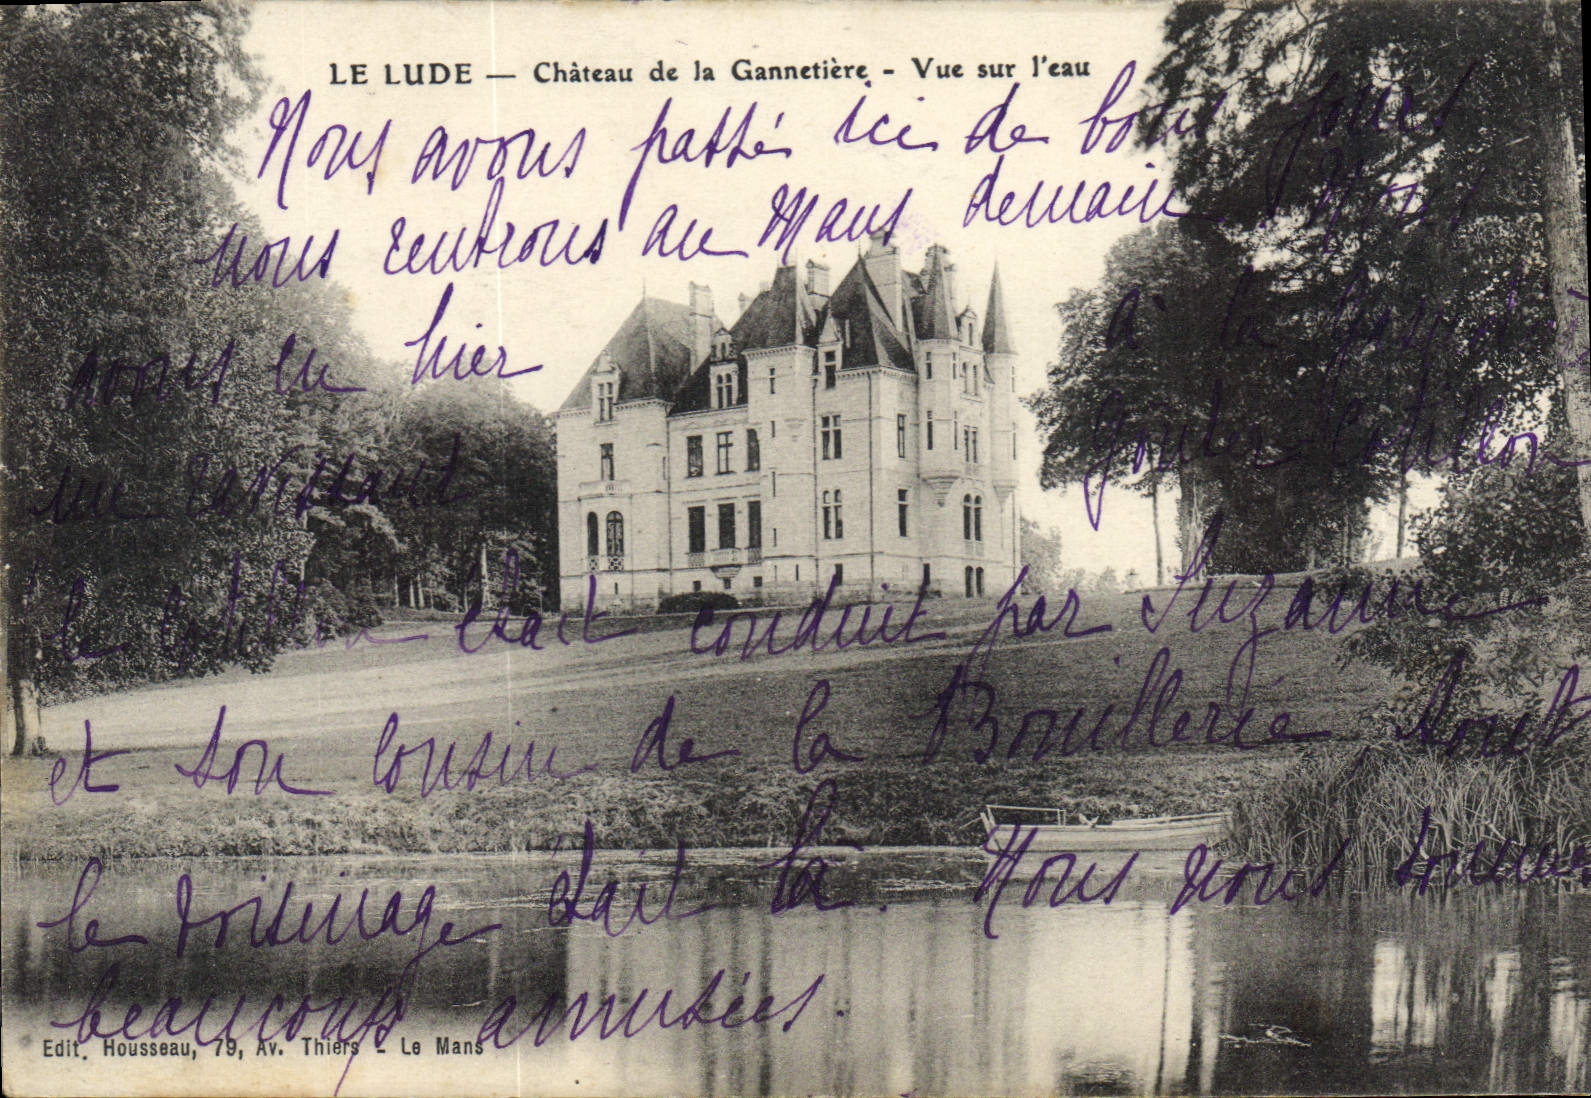 LE LUDE — Château de la Gannetière - Vue sur l'eau
Nous avons passé ici de bons jours
nous rentrons au Mans demain. Nous
avons eu hier à la
un ravissant gouter cotillon
le cotillon était conduit par Suzanne
et son cousin de la Bouillerie tout
le voisinage était là. Nous nous sommes
beaucoup amusées.
Edit. Housseau, 79, Av. Thiers - Le Mans